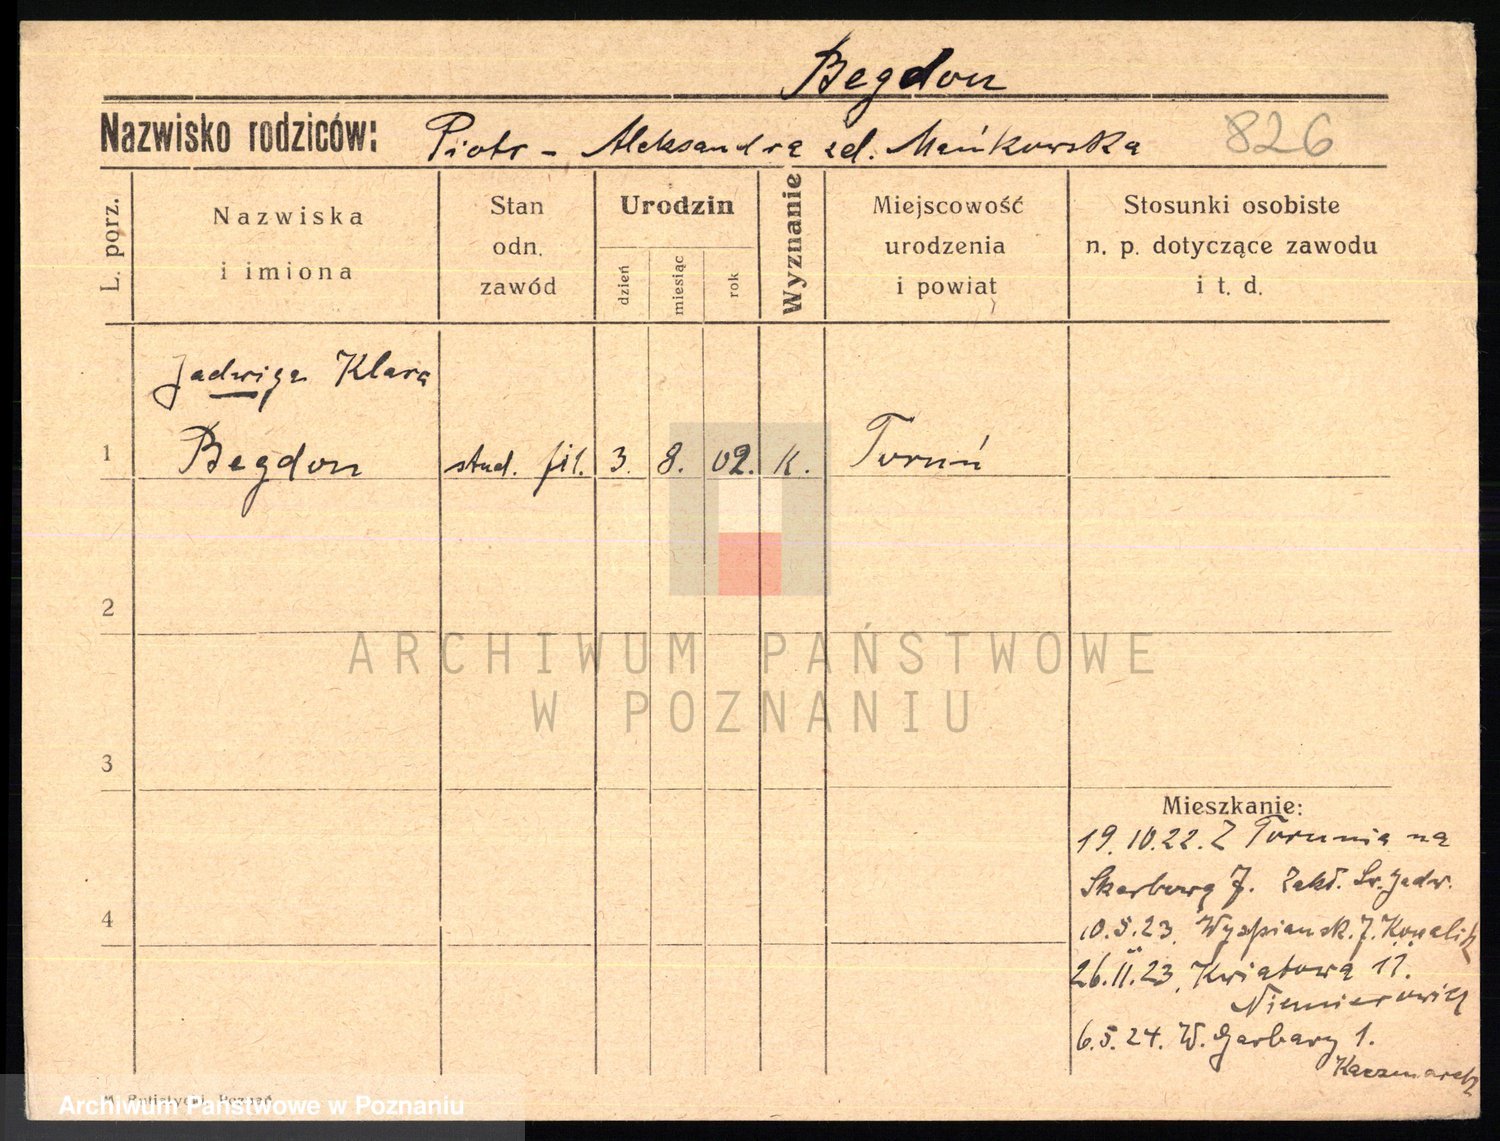 Begdon
Nazwisko rodziców: Piotr - Aleksandra zd. Mańkowska 826
L. porz.
Nazwiska
i imiona
Stan
odn.
zawód
Urodzin
dzień
miesiąc
rok
Wyznanie
Miejscowość
urodzenia
i powiat
Stosunki osobiste
n. p. dotyczące zawodu
i t. d.
Jadwiga Klara
1 Begdon stud. fil. 3. 8. 02. k. Toruń
2
3
4
Mieszkanie:
19.10.22. Z Torunia na
Skarbową 7. Zakł. Św. Jadw.
10.5.23. Wyspiańsk. 7.
26.II.23. Kwiatowa 11.
Niemierowicz
6.5.24. W. Garbary 1.
Kaczmarek
ARCHIWUM PAŃSTWOWE
W POZNANIU
Archiwum Państwowe w Poznaniu